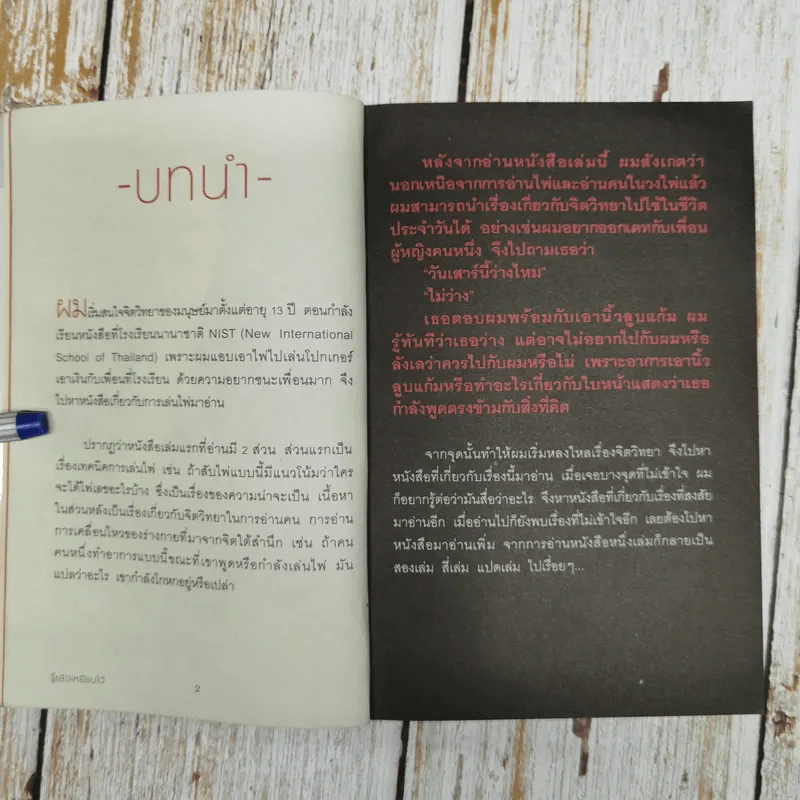 -บทนำ-
ผมเริ่มสนใจจิตวิทยาของมนุษย์มาตั้งแต่อายุ 13 ปี ตอนกำลัง
เรียนหนังสือที่โรงเรียนนานาชาติ NIST (New International
School of Thailand) เพราะผมแอบเอาไพ่ไปเล่นโปกเกอร์
เอาเงินกับเพื่อนที่โรงเรียน ด้วยความอยากชนะเพื่อนมาก จึง
ไปหาหนังสือเกี่ยวกับการเล่นไพ่มาอ่าน
ปรากฏว่าหนังสือเล่มแรกที่อ่านมี 2 ส่วน ส่วนแรกเป็น
เรื่องเทคนิคการเล่นไพ่ เช่น ถ้าสับไพ่แบบนี้มีแนวโน้มว่าใคร
จะได้ไพ่เลขอะไรบ้าง ซึ่งเป็นเรื่องของความน่าจะเป็น เนื้อหา
ในส่วนหลังเป็นเรื่องเกี่ยวกับจิตวิทยาในการอ่านคน การอ่าน
การเคลื่อนไหวของร่างกายที่มาจากจิตใต้สำนึก เช่น ถ้าคน
คนหนึ่งทำอาการแบบนี้ขณะที่เขาพูดหรือกำลังเล่นไพ่ มัน
แปลว่าอะไร เขากำลังโกหกอยู่หรือเปล่า
รู้แล้วเหยียบไว้
2
หลังจากอ่านหนังสือเล่มนี้ ผมสังเกตว่า
นอกเหนือจากการอ่านไพ่และอ่านคนในวงไพ่แล้ว
ผมสามารถนำเรื่องเกี่ยวกับจิตวิทยาไปใช้ในชีวิต
ประจำวันได้ อย่างเช่นผมอยากออกเดทกับเพื่อน
ผู้หญิงคนหนึ่ง จึงไปถามเธอว่า
"วันเสาร์นี้ว่างไหม"
"ไม่ว่าง"
เธอตอบผมพร้อมกับเอานิ้วลูบแก้ม ผม
รู้ทันทีว่าเธอว่าง แต่อาจไม่อยากไปกับผมหรือ
ลังเลว่าควรไปกับผมหรือไม่ เพราะอาการเอานิ้ว
ลูบแก้มหรือทำอะไรเกี่ยวกับใบหน้าแสดงว่าเธอ
กำลังพูดตรงข้ามกับสิ่งที่คิด
จากจุดนั้นทำให้ผมเริ่มหลงใหลเรื่องจิตวิทยา จึงไปหา
หนังสือที่เกี่ยวกับเรื่องนี้มาอ่าน เมื่อเจอบางจุดที่ไม่เข้าใจ ผม
ก็อยากรู้ต่อว่ามันสื่อว่าอะไร จึงหาหนังสือที่เกี่ยวกับเรื่องที่สงสัย
มาอ่านอีก เมื่ออ่านไปก็ยังพบเรื่องที่ไม่เข้าใจอีก เลยต้องไปหา
หนังสือมาอ่านเพิ่ม จากการอ่านหนังสือหนึ่งเล่มก็กลายเป็น
สองเล่ม สี่เล่ม แปดเล่ม ไปเรื่อยๆ...